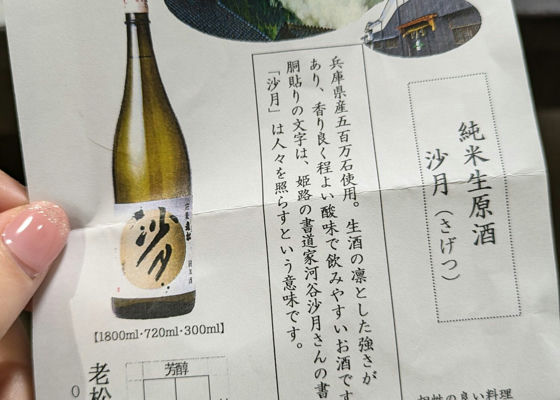 純米生原酒
沙月(さげつ)
兵庫県産五百万石使用。生酒の凛とした強さが
あり、香り良く程よい酸味で飲みやすいお酒です
胴貼りの文字は、姫路の書道家河谷沙月さんの書
「沙月」は人々を照らすという意味です。
沙月
【1800ml・720ml・300ml】
芳醇
老松
相性の良い料理